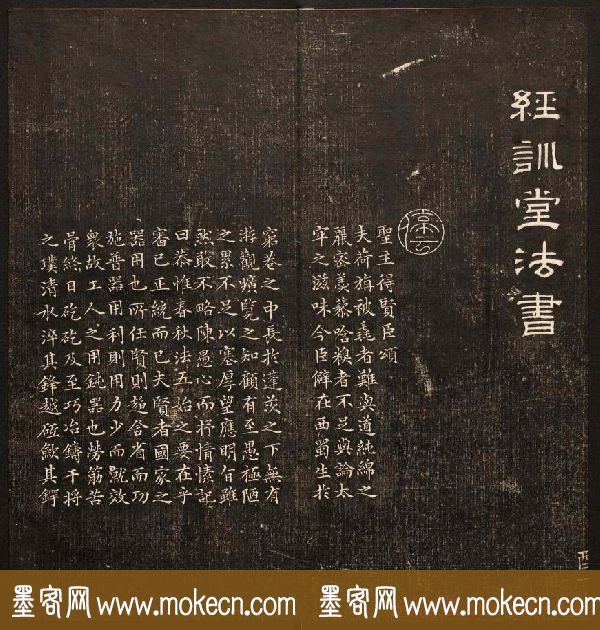 經訓堂法書
聖主得賢臣頌
夫荷旃被毳者難與道純綿之
麗密羹藜唅糗者不足與論太
牢之滋味今臣僻在西蜀生於
窮巷之中長於蓬茨之下無有
游觀廣覽之知顧有至愚極陋
之累不足以塞厚望應明旨雖
然敢不略陳愚心而抒情愫記
曰恭惟春秋法五始之要在乎
審己正統而已夫賢者國家之
器用也所任賢則趨舍省而功
施普器用利則用力少而就效
衆故工人之用鈍器也勞筋苦
骨終日矻矻及至巧冶鑄干將
之璞清水淬其鋒越砥斂其鍔
墨客网 www.mokecn.com 墨客网 www.mokecn.com